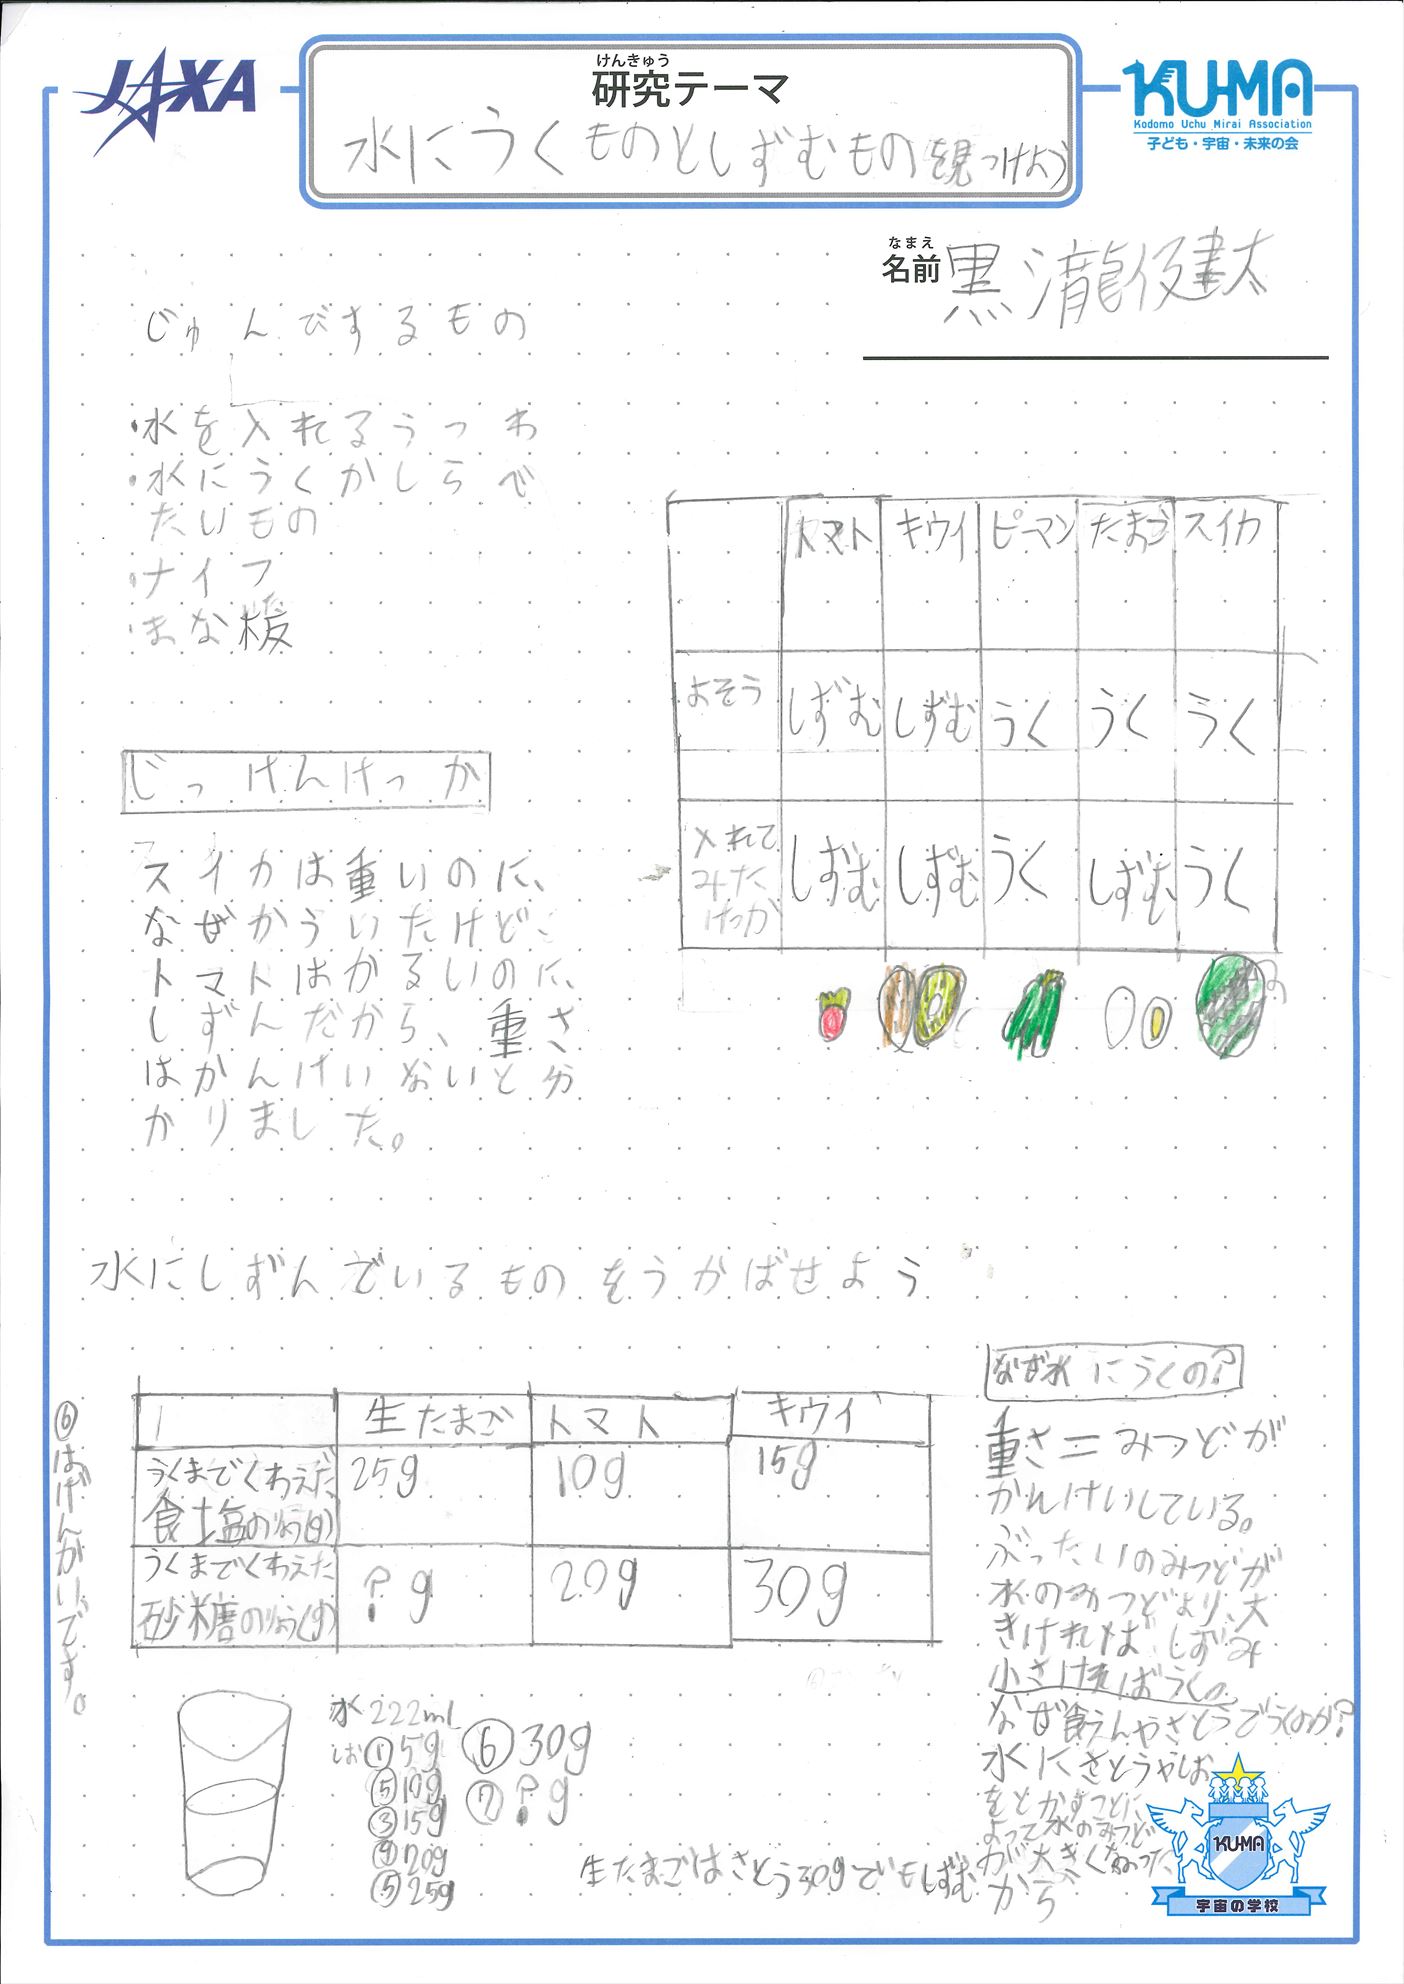 JAXA
けんきゅう
研究テーマ
水にうくものとしずむもの を見つけよう
KUMA
Kodomo Uchu Mirai Association
子ども・宇宙・未来の会
なまえ
名前 黒瀧俊健太
じゅんびするもの
・水を入れるうつわ
・水にうくかしらべ
たいもの
・ナイフ
・まな板
トマト キウイ ピーマン たまご スイカ
よそう しずむ しずむ うく うく うく
入れてみたけっか しずむ しずむ うく しずむ うく
じっけんけっか
スイカは重いのに、
なぜかういたけど、
トマトはかるいのに、
しずんだから、重さ
はかんけいないと分
かりました。
水にしずんでいるものをうかばせよう
生たまご トマト キウイ
うくまでくわえた
食塩のりょう(g) 25g 10g 15g
うくまでくわえた
砂糖のりょう(g) ?g 20g 30g
⑥はげんかいです。
水 222ml
しお ①5g
⑤10g
③15g
④20g
⑤25g
⑥30g
⑦?g
生たまごはさとう30gでもしずむ
なぜ水にうくの?
重さ=みつどが
かんけいしている。
ぶったいのみつどが
水のみつどより、大
きければ、しずみ
小さければうく。
なぜ食えんやさとうでうくのか?
水にさとうやしお
をとかすことに
よって水のみつど
が大きくなった
から
KUMA
宇宙の学校